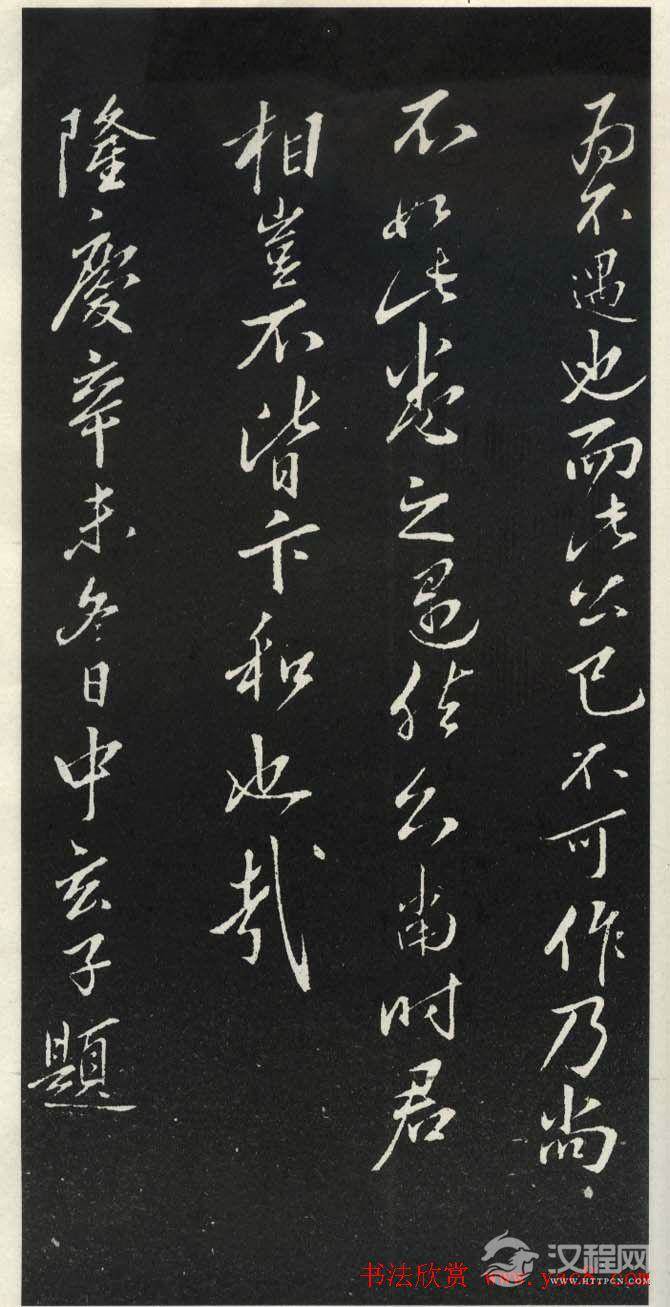 為不遇也而此公已不可作乃尚
不如此卷之遇然公當時君
相豈不皆卞和也哉
隆慶辛未冬日中玄子題
书法欣赏
汉程网
WWW.HTTPCN.COM